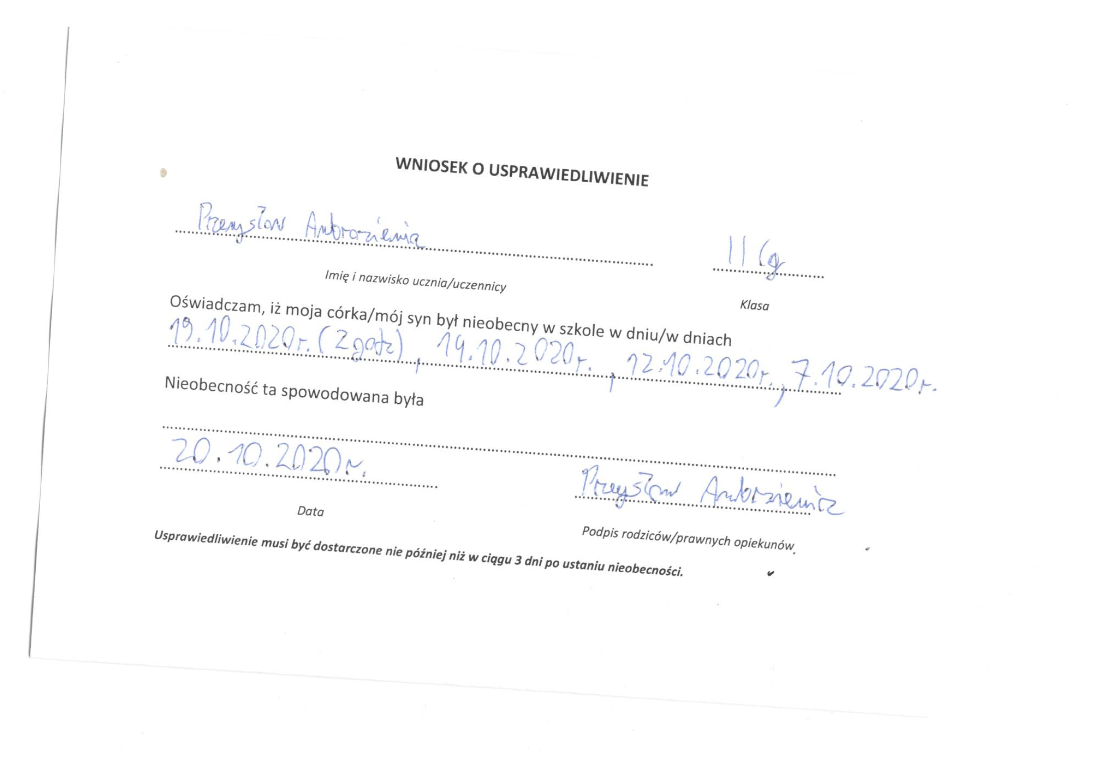 WNIOSEK O USPRAWIEDLIWIENIE
Przemysław Ambroziewicz II Cg
Imię i nazwisko ucznia/uczennicy Klasa
Oświadczam, iż moja córka/mój syn był nieobecny w szkole w dniu/w dniach
19.10.2020r. (2 godz), 14.10.2020r., 12.10.2020r., 7.10.2020r.
Nieobecność ta spowodowana była
20.10.2020r. Przemysław Ambroziewicz
Data Podpis rodziców/prawnych opiekunów
Usprawiedliwienie musi być dostarczone nie później niż w ciągu 3 dni po ustaniu nieobecności.